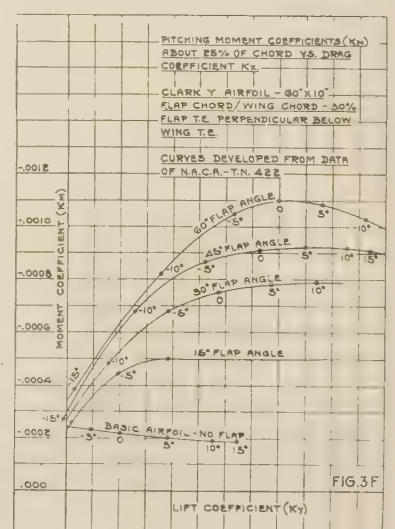 PITCHING MOMENT COEFFICIENTS (KM)
ABOUT 25% OF CHORD VS. DRAG
COEFFICIENT Kx.
CLARK Y AIRFOIL - 60"X10"
FLAP CHORD/WING CHORD - 30%
FLAP T.E. PERPENDICULAR BELOW
WING T.E.
CURVES DEVELOPED FROM DATA
OF N.A.C.A.-T.N. 422
-.0012
-.0010
-.0008
-.0006
-.0004
-.0002
.000
MOMENT COEFFICIENT (KM)
60° FLAP ANGLE
-15°
-10°
-5°
0
5°
-10°
45° FLAP ANGLE
-15°
-10°
-5°
0
5°
10°
15°
30° FLAP ANGLE
-10°
-5°
0
5°
10°
15° FLAP ANGLE
-5°
BASIC AIRFOIL - NO FLAP
-5°
0
5°
10°
15°
FIG. 3F
LIFT COEFFICIENT (KY)